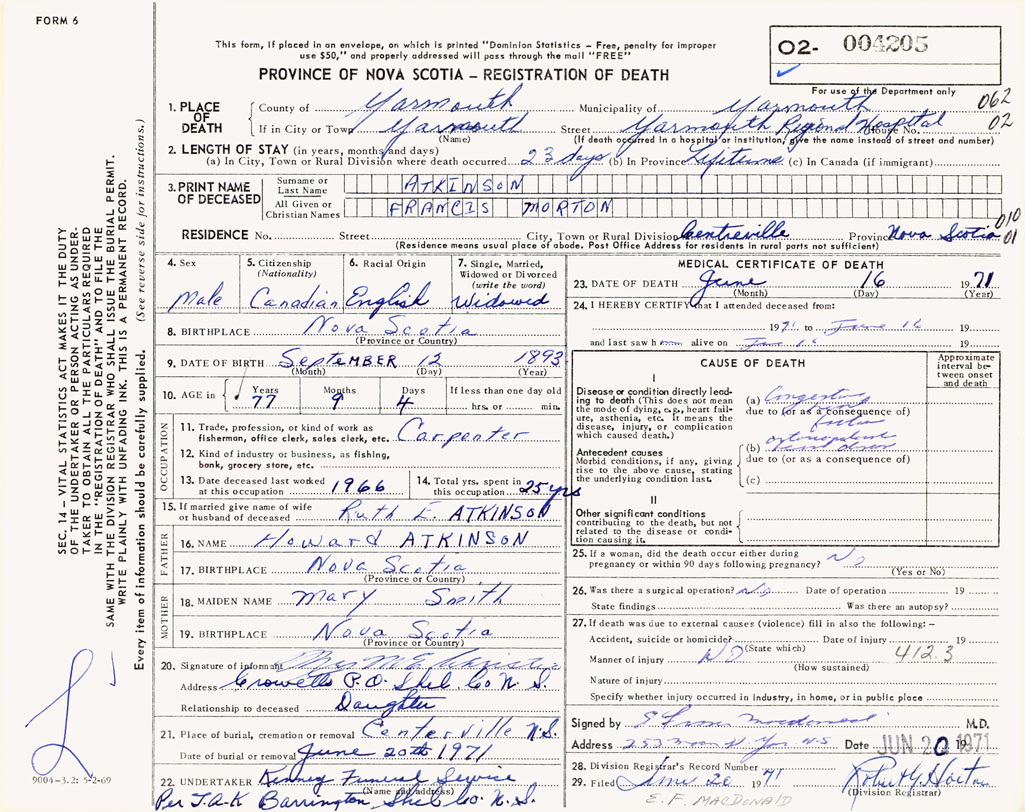 FORM 6
This form, if placed in an envelope, on which is printed "Dominion Statistics – Free, penalty for improper
use $50," and properly addressed will pass through the mail "FREE"
PROVINCE OF NOVA SCOTIA – REGISTRATION OF DEATH
02- 004205
For use of the Department only
1. PLACE OF DEATH
County of Yarmouth Municipality of Yarmouth 062
If in City or Town Yarmouth Street Yarmouth Regional Hospital House No. 02
(Name) (If death occurred in a hospital or institution, give the name instead of street and number)
2. LENGTH OF STAY (in years, months, and days)
(a) In City, Town or Rural Division where death occurred 23 days (b) In Province Lifetime (c) In Canada (if immigrant)
3. PRINT NAME OF DECEASED
Surname or Last Name ATKINSON
All Given or Christian Names FRANCIS MORTON
RESIDENCE No. Street City, Town or Rural Division Centreville Province Nova Scotia 010 01
(Residence means usual place of abode. Post Office Address for residents in rural parts not sufficient)
4. Sex Male
5. Citizenship (Nationality) Canadian
6. Racial Origin English
7. Single, Married, Widowed or Divorced (write the word) Widowed
8. BIRTHPLACE Nova Scotia
(Province or Country)
9. DATE OF BIRTH September 12 1893
(Month) (Day) (Year)
10. AGE in Years 77 Months 9 Days 4 If less than one day old hrs. or min.
OCCUPATION
11. Trade, profession, or kind of work as fisherman, office clerk, sales clerk, etc. Carpenter
12. Kind of industry or business, as fishing, bank, grocery store, etc.
13. Date deceased last worked at this occupation 1966
14. Total yrs. spent in this occupation 25 yrs
15. If married give name of wife or husband of deceased Ruth E. ATKINSON
FATHER
16. NAME Howard ATKINSON
17. BIRTHPLACE Nova Scotia
(Province or Country)
MOTHER
18. MAIDEN NAME Mary Smith
19. BIRTHPLACE Nova Scotia
(Province or Country)
20. Signature of informant Mrs
Address Crowells P.O. Shel. Co N.S.
Relationship to deceased Daughter
21. Place of burial, cremation or removal Centerville N.S.
Date of burial or removal June 20th 1971
22. UNDERTAKER Kenney Funeral Service
(Name and address)
Per J.A.K Barrington, Shel Co. N.S.
MEDICAL CERTIFICATE OF DEATH
23. DATE OF DEATH June 16 1971
(Month) (Day) (Year)
24. I HEREBY CERTIFY that I attended deceased from:
1971 to June 16 19
and last saw h alive on 19
CAUSE OF DEATH
Approximate interval between onset and death
I
Disease or condition directly leading to death (This does not mean the mode of dying, e.g., heart failure, asthenia, etc. It means the disease, injury, or complication which caused death.)
(a) Congestive
due to (or as a consequence of)
Antecedent causes
Morbid conditions, if any, giving rise to the above cause, stating the underlying condition last.
(b) heart disease
due to (or as a consequence of)
(c)
II
Other significant conditions contributing to the death, but not related to the disease or condition causing it.
25. If a woman, did the death occur either during pregnancy or within 90 days following pregnancy? No
(Yes or No)
26. Was there a surgical operation? No Date of operation 19
State findings Was there an autopsy?
27. If death was due to external causes (violence) fill in also the following: –
Accident, suicide or homicide? Date of injury 19
(State which)
Manner of injury NO 412.3
(How sustained)
Nature of injury
Specify whether injury occurred in Industry, in home, or in public place
Signed by M.D.
Address Date JUN 20 1971
28. Division Registrar's Record Number
29. Filed June 20 1971 Robert G. Horton
(Division Registrar)
E. F. MACDONALD
SEC. 14 – VITAL STATISTICS ACT MAKES IT THE DUTY
OF THE UNDERTAKER OR PERSON ACTING AS UNDER-
TAKER TO OBTAIN ALL THE PARTICULARS REQUIRED
IN THE "REGISTRATION OF DEATH" AND TO FILE THE
SAME WITH THE DIVISION REGISTRAR WHO SHALL ISSUE THE BURIAL PERMIT.
WRITE PLAINLY WITH UNFADING INK. THIS IS A PERMANENT RECORD.
Every item of information should be carefully supplied. (See reverse side for instructions.)
9004-3.2: 5-2-69